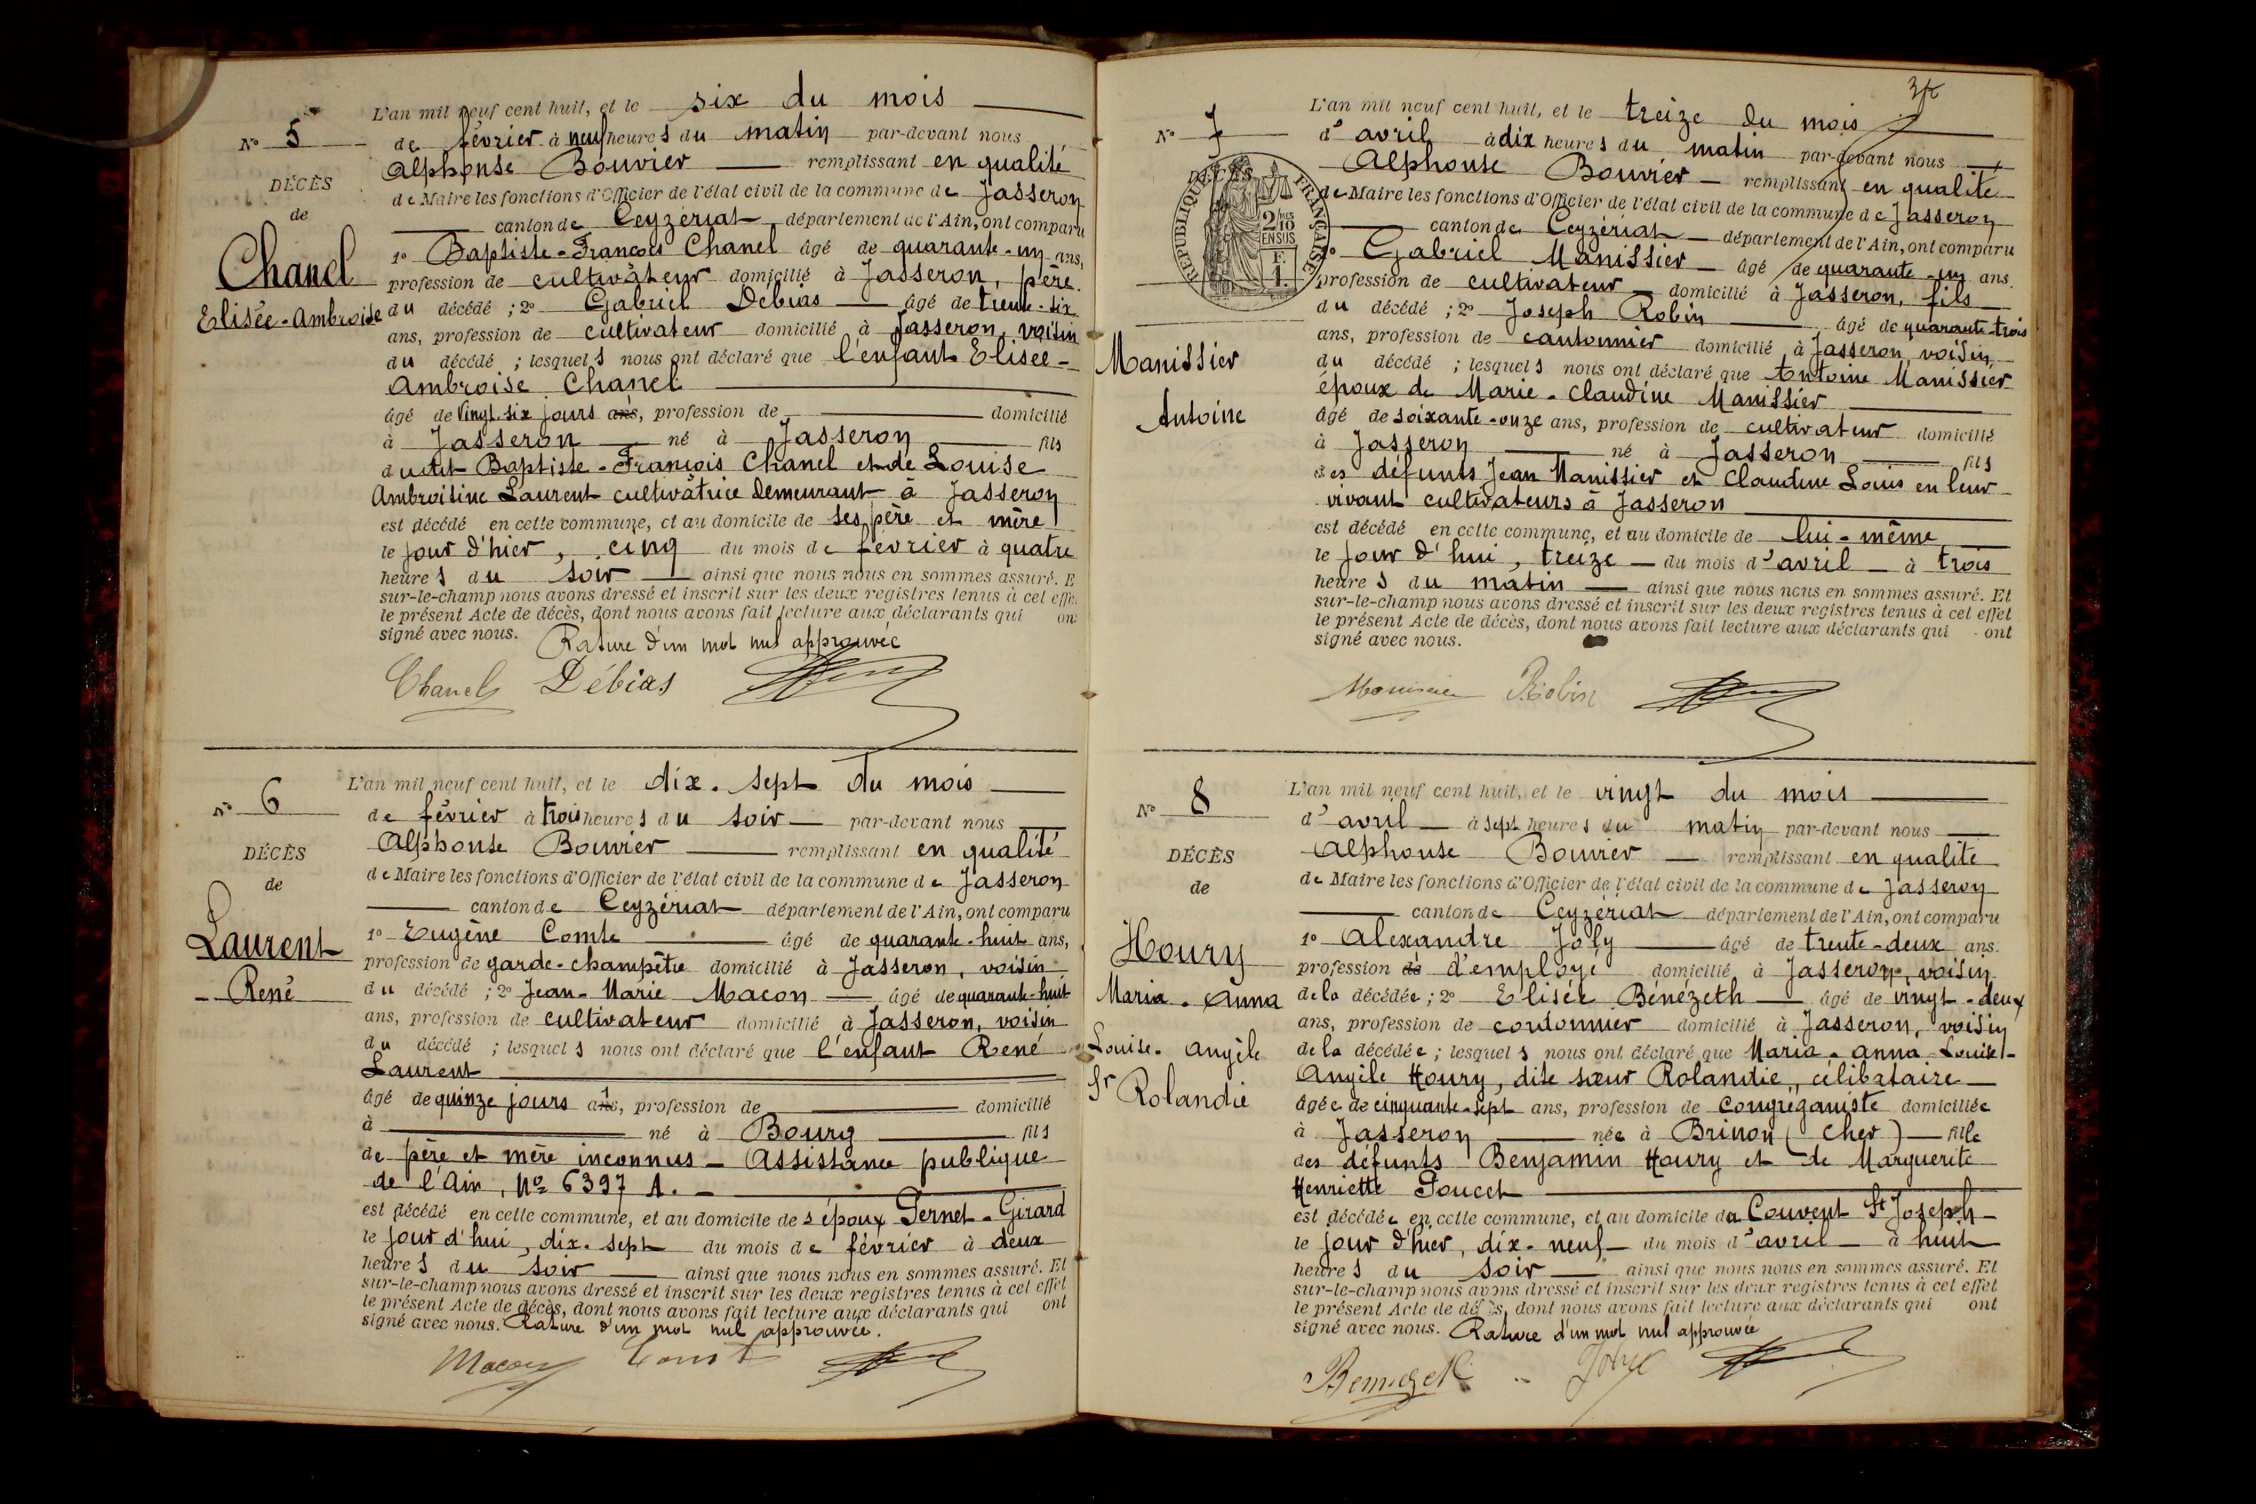 L'an mil neuf cent huit, et le six du mois
No 5
de février à neuf heures du matin par-devant nous
Alphonse Bouvier remplissant en qualité
DÉCÈS
de Maire les fonctions d'Officier de l'état civil de la commune de Jasseron
de
canton de Ceyzériat département de l'Ain, ont comparu
1o Baptiste-François Chanel âgé de quarante-un ans,
Chanel
profession de cultivateur domicilié à Jasseron, père
Elisée-Ambroise
du décédé ; 2o Gabriel Debias âgé de trente-six
ans, profession de cultivateur domicilié à Jasseron, voisin
du décédé ; lesquels nous ont déclaré que l'enfant Elisée-
Ambroise Chanel
âgé de vingt-six jours ans, profession de domicilié
à Jasseron né à Jasseron fils
dudit Baptiste-François Chanel et de Louise
Ambroisine Laurent cultivatrice demeurant à Jasseron
est décédé en cette commune, et au domicile de ses père et mère
le jour d'hier, cinq du mois de février à quatre
heures du soir ainsi que nous nous en sommes assuré. E
sur-le-champ nous avons dressé et inscrit sur les deux registres tenus à cet effe
le présent Acte de décès, dont nous avons fait lecture aux déclarants qui on
signé avec nous. Rature d'un mot nul approuvée
Chanel Débias
L'an mil neuf cent huit, et le dix-sept du mois
No 6
de février à trois heures du soir par-devant nous
Alphonse Bouvier remplissant en qualité
DÉCÈS
de Maire les fonctions d'Officier de l'état civil de la commune de Jasseron
de
canton de Ceyzériat département de l'Ain, ont comparu
Laurent
1o Eugène Comte âgé de quarante-huit ans,
profession de garde-champêtre domicilié à Jasseron, voisin
René
du décédé ; 2o Jean-Marie Macon âgé de quarante-huit
ans, profession de cultivateur domicilié à Jasseron, voisin
du décédé ; lesquels nous ont déclaré que l'enfant René
Laurent
âgé de quinze jours ans, profession de domicilié
à né à Bourg fils
de père et mère inconnus - Assistance publique
de l'Ain, No 6397 A. -
est décédé en cette commune, et au domicile des époux Pernet-Girard
le jour d'hui, dix-sept du mois de février à deux
heures du soir ainsi que nous nous en sommes assuré. Et
sur-le-champ nous avons dressé et inscrit sur les deux registres tenus à cet effet
le présent Acte de décès, dont nous avons fait lecture aux déclarants qui ont
signé avec nous. Rature d'un mot nul approuvée.
Macon Comte
L'an mil neuf cent huit, et le treize du mois
No 7
d'avril à dix heures du matin par-devant nous
Alphonse Bouvier remplissant en qualité
DÉCÈS
RÉPUBLIQUE FRANÇAISE
2/10
EN SUS
F.
1.
de Maire les fonctions d'Officier de l'état civil de la commune de Jasseron
canton de Ceyzériat département de l'Ain, ont comparu
1o Gabriel Manissier âgé de quarante-un ans.
profession de cultivateur domicilié à Jasseron, fils
du décédé ; 2o Joseph Robin âgé de quarante-trois
ans, profession de cantonnier domicilié à Jasseron, voisin
Manissier
du décédé ; lesquels nous ont déclaré que Antoine Manissier
époux de Marie-Claudine Manissier
Antoine
âgé de soixante-onze ans, profession de cultivateur domicilié
à Jasseron né à Jasseron fils
des défunts Jean Manissier et Claudine Louis en leur
vivant cultivateurs à Jasseron
est décédé en cette commune, et au domicile de lui-même
le jour d'hui, treize du mois d'avril à trois
heures du matin ainsi que nous nous en sommes assuré. Et
sur-le-champ nous avons dressé et inscrit sur les deux registres tenus à cet effet
le présent Acte de décès, dont nous avons fait lecture aux déclarants qui ont
signé avec nous.
Manissier Robin
L'an mil neuf cent huit, et le vingt du mois
No 8
d'avril à sept heures du matin par-devant nous
Alphonse Bouvier remplissant en qualité
DÉCÈS
de Maire les fonctions d'Officier de l'état civil de la commune de Jasseron
de
canton de Ceyzériat département de l'Ain, ont comparu
Houry
1o Alexandre Joly âgé de trente-deux ans.
profession de d'employé domicilié à Jasseron, voisin
Maria-Anna
de la décédée ; 2o Elisée Bénézeth âgé de vingt-deux
ans, profession de cordonnier domicilié à Jasseron, voisin
Louise-Angèle
de la décédée ; lesquels nous ont déclaré que Maria-Anna-Louise-
Angèle Houry, dite sœur Rolandie, célibataire
Sr Rolandie
âgée de cinquante-sept ans, profession de congréganiste domiciliée
à Jasseron née à Brinon (Cher) fille
des défunts Benjamin Houry et de Marguerite
Henriette Poucet
est décédée en cette commune, et au domicile du Couvent St Joseph
le jour d'hier, dix-neuf du mois d'avril à huit
heures du soir ainsi que nous nous en sommes assuré. Et
sur-le-champ nous avons dressé et inscrit sur les deux registres tenus à cet effet
le présent Acte de décès, dont nous avons fait lecture aux déclarants qui ont
signé avec nous. Rature d'un mot nul approuvée
Joly